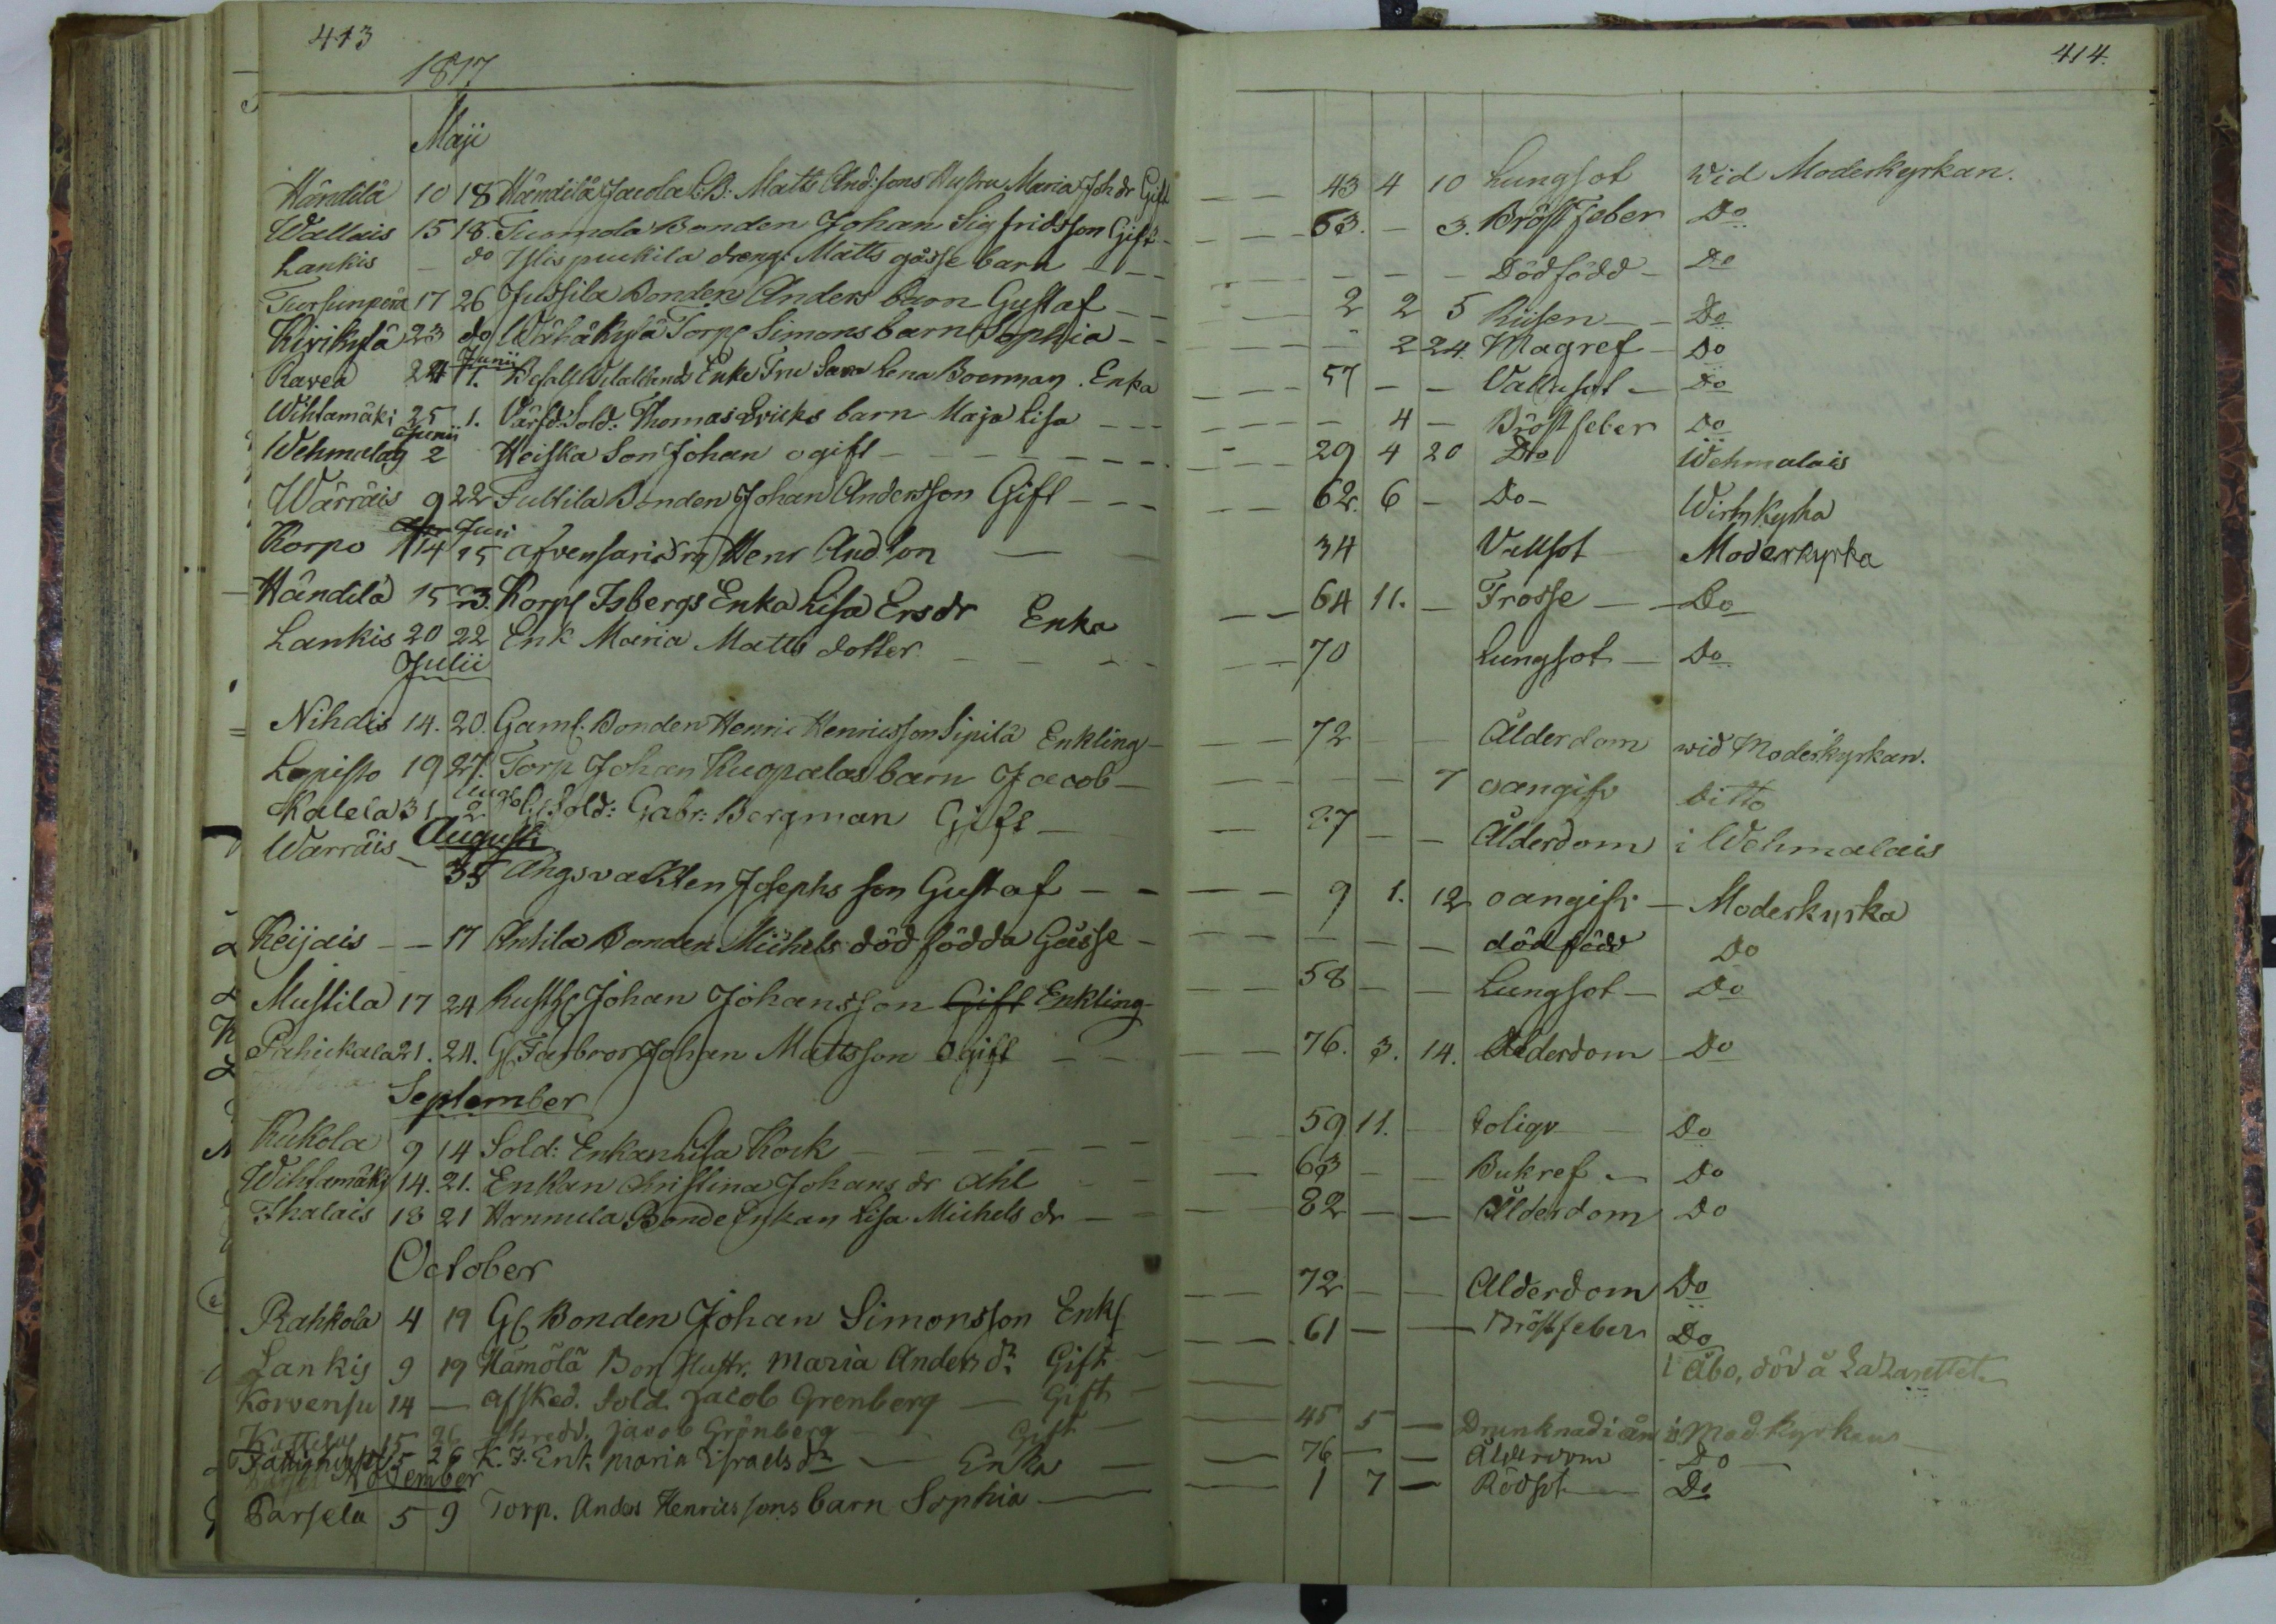 413
1817
Maji
Händilä 10 18 Händilä Jacola Matts And:sons Hustru Maria Joh dr Gift
Wallais 15 18. Tuomola Bonden Johan Sigfridsson Gift
Lankis — do drengs Matts gåsse barn
17 26 Jussila Bonden Anders barn Gustaf
Kirikylä 23 do Wähäkylä Torp Simons barn Sophia
Junii
Ravea 24 11. Enke Fru Lena Boerman. Enka
Wihtamäki 25 1. Sold: Thomas Ericks barn Maja Lisa
Junii
Wehmalag 2 Heiska Son Johan ogift
Wärräis 9 22 Bonden Johan Andersson Gift
Juni
Korpo 14 15 Henr And.son
Händilä 15 23. Isbergs Enka Lisa Ersdr Enka
Lankis 20 22 Enk Maria Matts dotter
Julii
Nihdis 14. 20. Gaml. Bonden Henric Henricsson Sipilä Enkling
Lepisto 19 27. Torp Johan Kuopalas barn Jacob
Kalela 31 2 Sold: Gabr: Bergman Gift
Warräis Augusti
3 5 Ängsvakten Josephs son Gustaf
Keijais — 17 Antila Bonden Michels död födda Gåsse
Mustila 17 24 Johan Johansson Gift Enkling
21. 24. Gl Farbror Johan Mattsson Ogift
September
Kukola 9 14 Sold: Enkan Lisa Kock
Wihtamäki 14. 21. Enkan Christina Johans dr Ahl
Ihalais 18 21 Hannula Bonde Enkan Lisa Michels dr
October
Rahkola 4 19 Gl Bonden Johan Simonsson Enkl
Lankis 9 19 Hämölä Bon Hustr. Maria Anders dr Gift
Korvensu 14 — afsked. Sold. Jacob Grenberg — Gift
15 26 Jacob Grönberg Gift
15 26 Enk. Maria Israels dr — Enka
November
Parsela 5 9 Torp. Anders Henricssons barn Sophia
414.
43 4 10 Lungsot Wid Moderkyrkan.
63. — 3. Bröstfeber Do
— — — Dödfödd Do
2 2 5 Riisen Do
2 24. Magref Do
57 — — Vattusot Do
4 — Bröstfeber Do
29 4 20 Do Wehmalais
62. 6 — Do
34 Moderkyrka
64 11. — Frosse — Do
70 Lungsot — Do
72 — — Ålderdom wid Moderkyrkan.
— — 7 oangifv ditto
— — Ålderdom i Wehmalais
9 1. 12 oangifv — Moderkyrka
— — — död född Do
58 — — Lungsot — Do
76. 3. 14. Ålderdom Do
59 11. — Do
63 — — Bukref — Do
82 — — Ålderdom Do
72 — — Ålderdom Do
61 — — Bröstfeber Do
i Åbo, död å Lazarettet
45 5 — Drunknad i ån i Mod.kyrkan
76 — — Ålderdom Do
1 7 — Rödsot Do